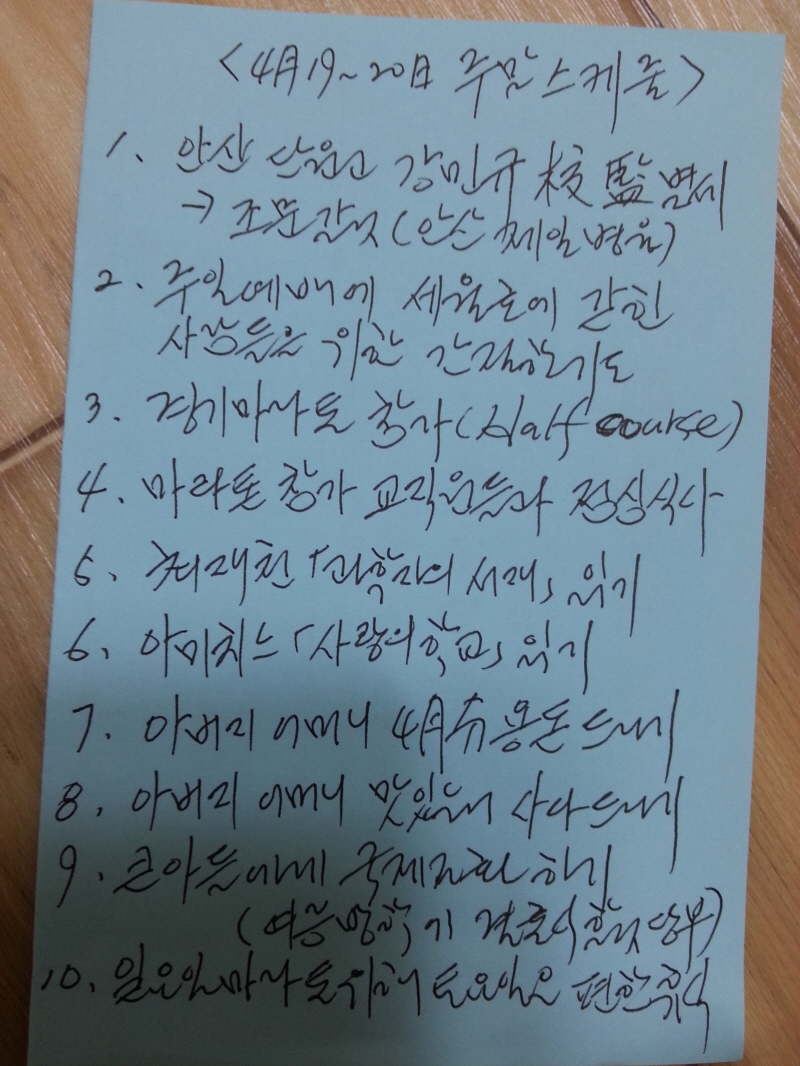 <4月19~20日 주말스케줄>
1. 안산 단원고 강민규 校監 별세
→ 조문갈것 (안산 제일병원)
2. 주일예배에 세월호에 갇힌
사람들을 위한 간절한기도
3. 경기마라톤 참가 (Half course)
4. 마라톤 참가 교직원들과 점심식사
5. 최재천 「과학자의 서재」 읽기
6. 아미치스 「사랑의 학교」 읽기
7. 아버지 어머니 4月 용돈드리기
8. 아버지 어머니 맛있는거 사다드리기
9. 큰아들에게 국제전화 하기
(여름방학기 결혼식할것 당부)
10. 일요일마라톤위해 토요일은 편한휴식